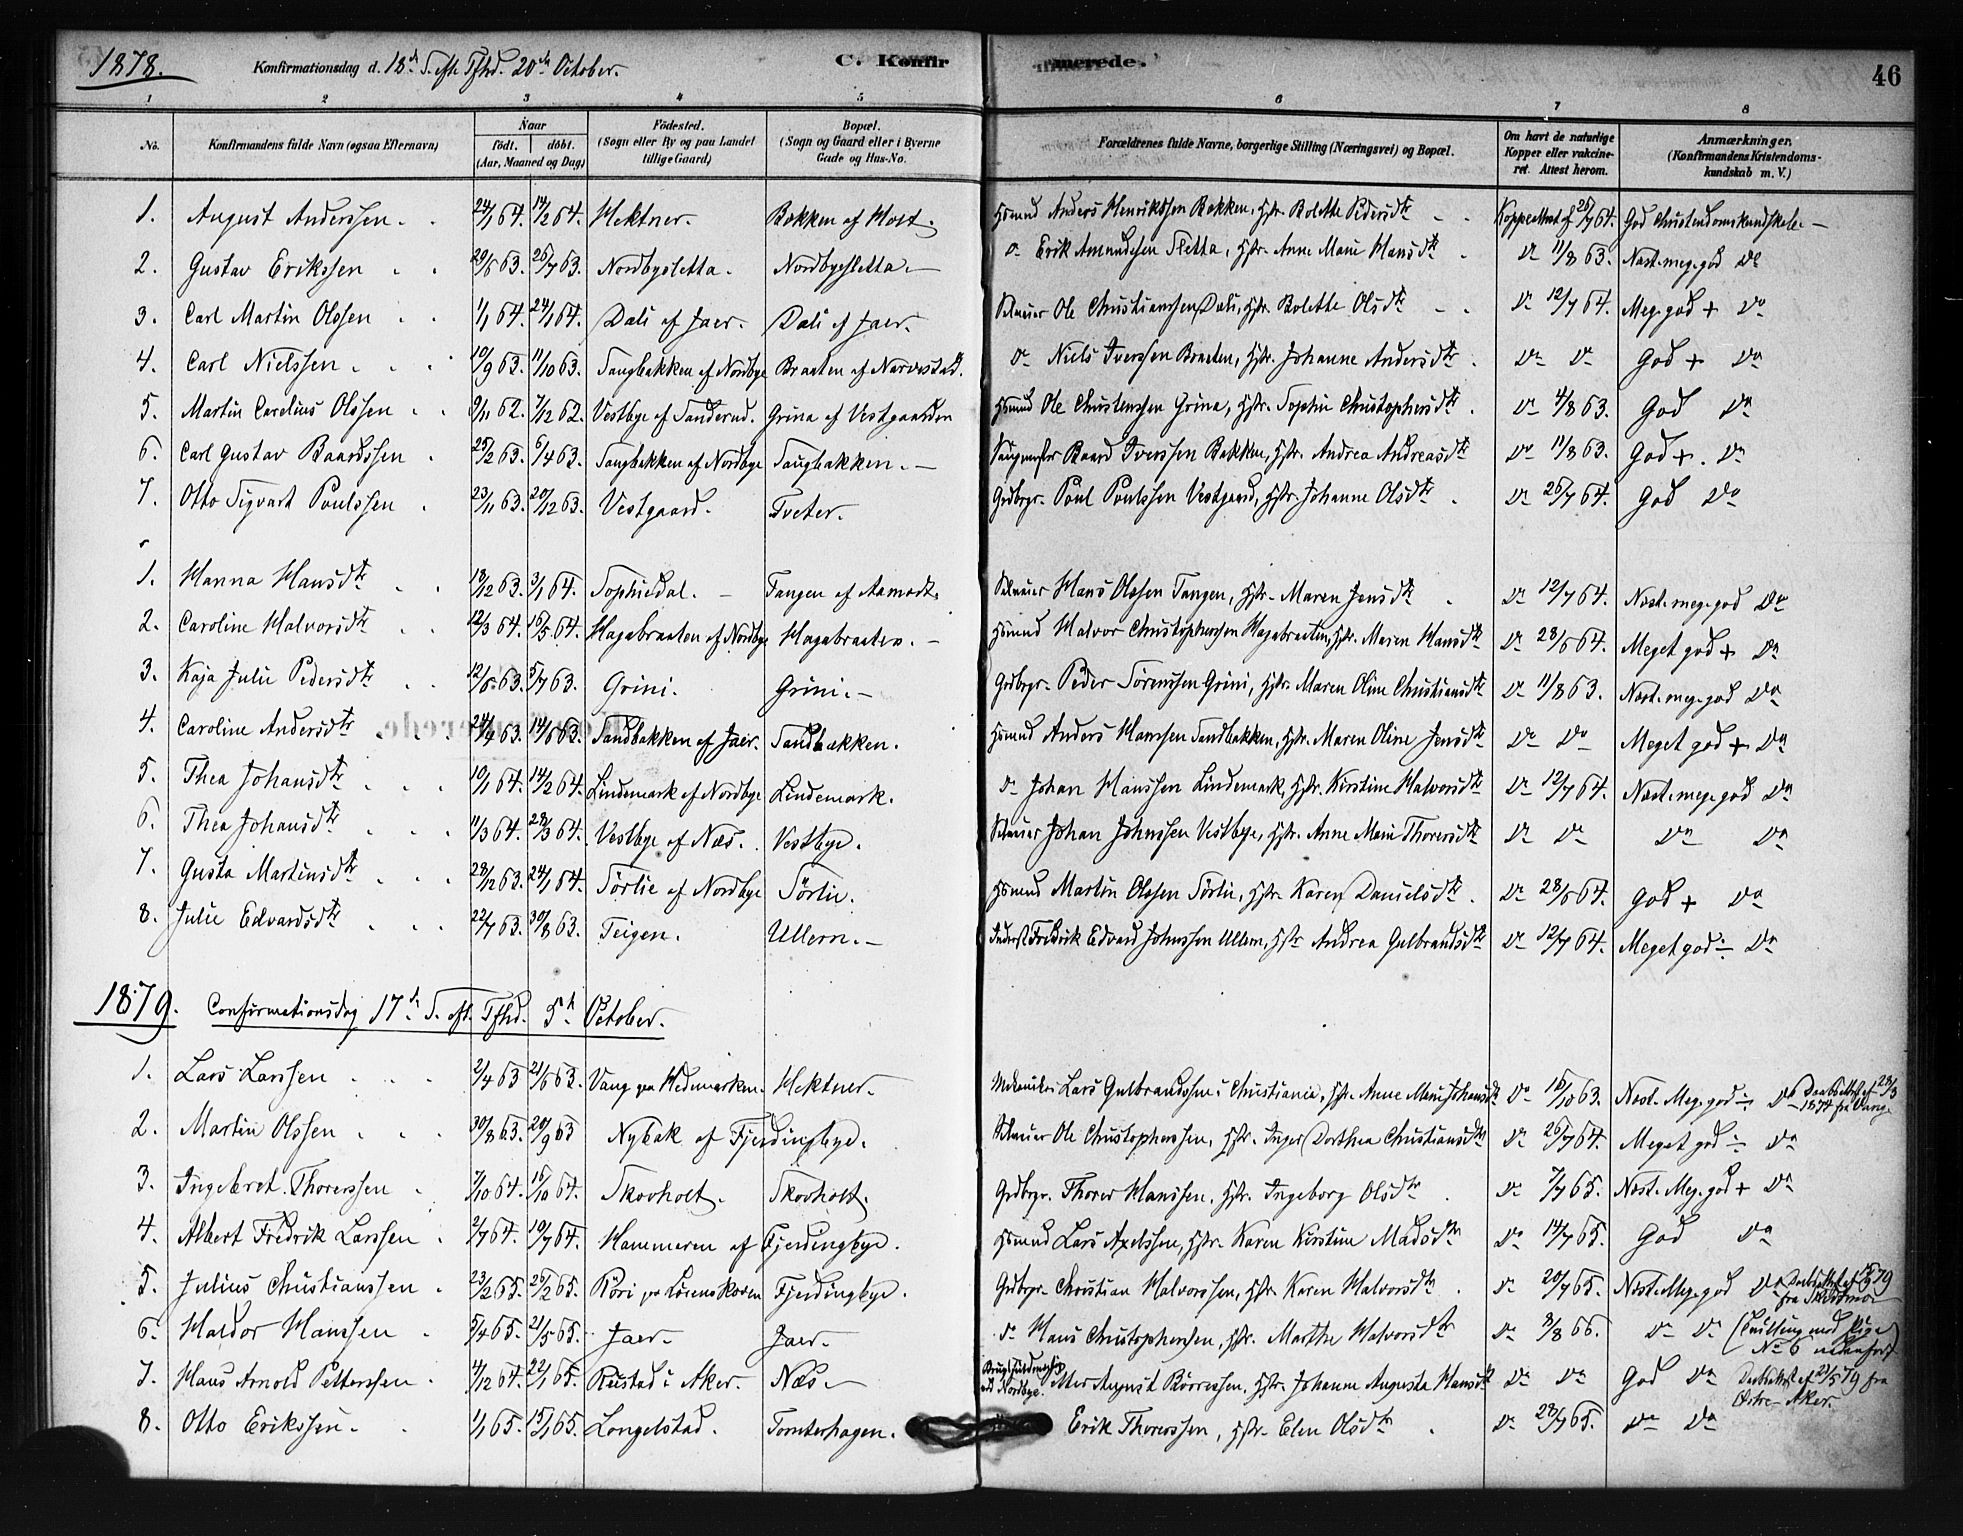 1878. Konfirmationsdag d. 18de S. eft. Tfhd. 20de October. C. Konfirmerede. 46
1 2 3 4 5 6 7 8
No. Konfirmandens fulde Navn (ogsaa Efternavn) Naar födt. döbt. (Aar, Maaned og Dag) Födested. (Sogn eller By og paa Landet tillige Gaard) Bopæl. (Sogn og Gaard eller i Byerne Gade og Hus-No. Forældrenes fulde Navne, borgerlige Stilling (Næringsvei) og Bopæl. Om havt de naturlige Kopper eller vakcineret. Attest herom. Anmærkninger. (Konfirmandens Kristendomskundskab m. V.)
1. August Anderssen. 24/1 64. 14/2 64. Hektner. Bakken af Holt. Hsmnd Anders Henrikssen Bakken, Hstr. Bolette Pedersdtr Koppeattest af 26/7 64. God Christendomskundskab. —
2. Gustav Erikssen 29/6 63. 26/7 63. Nordbysletta. Nordbysletta. — do Erik Amundsen Sletta, Hstr. Anne Marie Hansdtr do 11/8 63. Næst. meg. god do
3. Carl Martin Olssen 1/1 64. 24/1 64. Dali af Jaer. Dali af Jaer. Selveier Ole Christianssen Dali, Hstr. Bolette Olsdtr do 12/7 64. Meg. god + do
4. Carl Nielssen 10/9 63. 11/10 63. Saugbakken af Nordbye Braaten af Narvestad. do Niels Iverssen Braaten, Hstr. Johanne Andersdtr do do God + do
5. Martin Carelius Olssen 9/11 62. 7/12 62. Vestbye af Sanderud. Grina af Vestgaarden Hsmnd Ole Christenssen Grina, Hstr. Sophie Christophersdtr do 4/8 63. God do
6. Carl Gustav Baardssen 25/2 63. 6/4 63. Saugbakken af Nordbye Saugbakken. — Saugmster Baard Iverssen Bakken, Hstr. Andrea Andreasdtr do 11/8 63. God +. do
7. Otto Sigvart Poulssen 23/11 63. 20/12 63. Vestgaard. Tveter. Grdbrgr. Poul Poulssen Vestgaard, Hstr. Johanne Olsdtr do 26/7 64. God do
1. Hanna Hansdtr 18/12 63. 3/1 64. Sophiedal. — Tangen af Aamodt. Selveier Hans Olssen Tangen, Hstr. Maren Jensdtr do 12/7 64. Næst. meg. god do
2. Caroline Halvorsdtr 12/3 64. 16/5 64. Hagabraaten af Nordbye Hagabraaten. — Hsmnd Halvor Christophersen Hagabraaten, Hstr. Maren Hansdtr do 28/6 64. Meget god + do
3. Kaja Julie Pedersdtr 12/6 63. 5/7 63. Grini. Grini. — Grdbrgr. Peder Sörenssen Grini, Hstr. Maren Oline Christiansdtr do 11/8 63. Næst. meg. god do
4. Caroline Andersdtr 24/4 63. 14/6 63. Sandbakken af Jaer. Sandbakken. Hsmnd Anders Hanssen Sandbakken, Hstr. Maren Oline Jensdtr do do Meget god + do
5. Thea Johansdtr 10/1 64. 14/2 64. Lindemark af Nordbye Lindemark. do Johan Hanssen Lindemark, Hstr. Kirstine Halvorsdtr do 12/7 64. Næst. meg. god do
6. Thea Johansdtr 11/3 64. 28/3 64. Vestbye af Næs. Vestbye. Selveier Johan Johnssen Vestbye, Hstr. Anne Marie Thorersdtr do do do do
7. Gusta Martinsdtr 28/12 63. 24/1 64. Sörlie af Nordbye Sörlie. Hsmnd Martin Olssen Sörlie, Hstr. Karen Danielsdtr do 28/6 64. God + do
8. Julie Edvardsdtr 22/7 63. 30/8 63. Teigen. Ullern. — Inderst Fredrik Edvard Johnssen Ullern, Hstr Andrea Gulbrandsdtr do 12/7 64. Meget god ÷ do
1879. Confirmationsdag 17de S. eft. Tfhd. 5te October.
1. Lars Larssen 2/4 63 21/6 63. Vang paa Hedemarken. Hektner. Mekaniker Lars Gulbrandssen i Christiania, Hstr. Anne Marie Johansdtr do 16/10 63. Næst. Meg. god ÷ do Daabsattest af 28/3 1874 fra Vang.
2. Martin Olssen 30/8 63. 20/9 63 Nybak af Fjerdingbye. Selveier Ole Christopherssen, Hstr. Inger Dorthea Christiansdtr do 26/7 64. Meget god ÷ do
3. Ingebret Thorerssen 7/10 64. 15/10 64. Skovholt. Skovholt. Grdbrgr. Thorer Hanssen, Hstr. Ingeborg Olsdtr do 7/7 65. Næst. Meg. god + do
4. Albert Fredrik Larssen 2/7 64. 10/7 64. Hammeren af Fjerdingbye. Hsmnd Lars Axelssen, Hstr. Karen Kirstine Madsdtr do 14/7 65. God do
5. Julius Christianssen 23/2 65. 26/2 65. Röri paa Lörenskoven Fjerdingbye. Grdbrgr. Christian Halvorssen, Hstr. Karen Halvorsdtr do 20/7 65. Næst. Meg. god do
6. Haldor Hanssen 5/4 65. 21/5 65. Jaer. Jaer. do Hans Christophersen, Hstr. Marthe Halvorsdtr do 8/8 66. do do (Tvilling med Pige No 6 nedenfor)
7. Hans Arnold Petterssen 4/12 64. 22/1 65. Rustad i Aker. Næs. — ved Nordbye. August Börressen, Hstr. Johanne Augusta Hansdtr do do God do Daabsattest af 21/5 79 fra Östre-Aker.
8. Otto Erikssen. 1/1 65. 15/1 65. Longelstad. Tomterhagen. Erik Thorerssen, Hstr. Elen Olsdtr do 28/7 65. do do